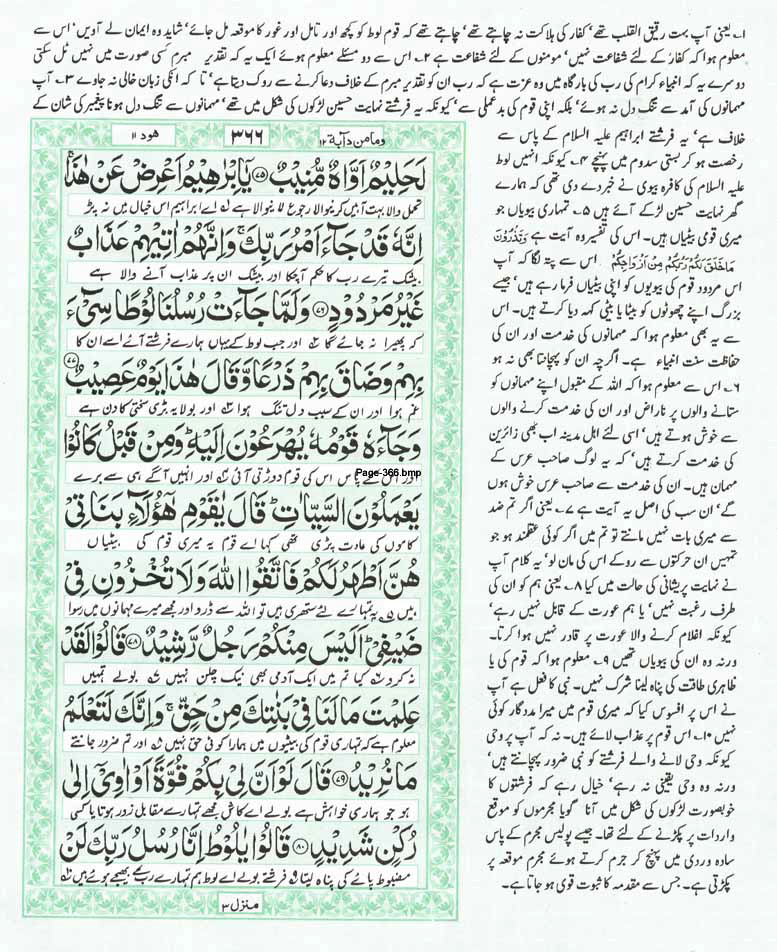 ۱۔ یعنی آپ بہت رقیق القلب تھے، کفار کی ہلاکت نہ چاہتے تھے، چاہتے تھے کہ قوم لوط کو کچھ اور تامل اور غور کا موقعہ مل جائے، شاید وہ ایمان لے آویں، اس سے
معلوم ہوا کہ کفار کے لئے شفاعت نہیں، مومنوں کے لئے شفاعت ہے ۲۔ اس سے دو مسئلے معلوم ہوئے ایک یہ کہ تقدیر مبرم کسی صورت میں نہیں ٹل سکتی
دوسرے یہ کہ انبیاء کرام کی رب کی بارگاہ میں وہ عزت ہے کہ رب ان کو تقدیر مبرم کے خلاف دعا کرنے سے روک دیتا ہے، تا کہ انکی زبان خالی نہ جاوے ۳۔ آپ
مہمانوں کی آمد سے تنگ دل نہ ہوئے، بلکہ اپنی قوم کی بدعملی سے، کیونکہ یہ فرشتے نہایت حسین لڑکوں کی شکل میں تھے، مہمانوں سے تنگ دل ہونا پیغمبر کی شان کے
خلاف ہے، یہ فرشتے ابراہیم علیہ السلام کے پاس سے
رخصت ہو کر بستی سدوم میں پہنچے ۴۔ کیونکہ انہیں لوط
علیہ السلام کی کافرہ بیوی نے خبر دے دی تھی کہ ہمارے
گھر نہایت حسین لڑکے آئے ہیں ۵۔ تمہاری بیویاں جو
میری قومی بیٹیاں ہیں۔ اس کی تفسیر وہ آیت ہے وَتَذَرُوْنَ
مَاخَلَقَ لَکُمْ رَبُّکُمْ مِنْ اَزْوَاجِکُمْ اس سے پتہ لگا کہ آپ
اس مردود قوم کی بیویوں کو اپنی بیٹیاں فرما رہے ہیں، جیسے
بزرگ اپنے چھوٹوں کو بیٹا یا بیٹی کہہ دیا کرتے ہیں۔ اس
سے یہ بھی معلوم ہوا کہ مہمانوں کی خدمت اور ان کی
حفاظت سنت انبیاء ہے۔ اگرچہ ان کو پہچانتا بھی نہ ہو
۶۔ اس سے معلوم ہوا کہ اللہ کے مقبول اپنے مہمانوں کو
ستانے والوں پر ناراض اور ان کی خدمت کرنے والوں
سے خوش ہوتے ہیں، اسی لئے اہل مدینہ اب بھی زائرین
کی خدمت کرتے ہیں، کہ یہ لوگ صاحب عرس کے
مہمان ہیں۔ ان کی خدمت سے صاحب عرس خوش ہوں
گے، ان سب کی اصل یہ آیت ہے ۷۔ یعنی اگر تم ضد
سے میری بات نہیں مانتے تو تم میں اگر کوئی عقلمند ہو جو
تمہیں ان حرکتوں سے روکے اس کی مان لو، یہ کلام آپ
نے نہایت پریشانی کی حالت میں کیا ۸۔ یعنی ہم کو ان کی
طرف رغبت نہیں، یا ہم عورت کے قابل نہیں رہے،
کیونکہ اغلام کرنے والا عورت پر قادر نہیں ہوا کرتا۔
ورنہ وہ ان کی بیویاں تھیں ۹۔ معلوم ہوا کہ قوم کی یا
ظاہری طاقت کی پناہ لینا شرک نہیں۔ نبی کا فعل ہے آپ
نے اس پر افسوس کیا کہ میری قوم میں میرا مددگار کوئی
نہیں ۱۰۔ اس قوم پر عذاب لائے ہیں۔ نہ کہ آپ پر وحی
کیونکہ وحی لانے والے فرشتے کو نبی ضرور پہچانتے ہیں،
ورنہ وہ وحی یقینی نہ رہے، خیال رہے کہ فرشتوں کا
خوبصورت لڑکوں کی شکل میں آنا گویا مجرموں کو موقع
واردات پر پکڑنے کے لئے تھا۔ جیسے پولیس مجرم کے پاس
سادہ وردی میں پہنچ کر جرم کرتے ہوئے مجرم موقعہ پر
پکڑتی ہے۔ جس سے مقدمہ کا ثبوت قوی ہو جاتا ہے۔
ومامن دآبة ۱۲
۳۶۶
ھود ۱۱
لَحَلِیْمٌ اَوَّاہٌ مُّنِیْبٌ ﴿۷۵﴾ یٰۤاِبْرٰھِیْمُ اَعْرِضْ عَنْ ھٰذَا
تحمل والا بہت آہیں کرنیوالا رجوع لانیوالا ہے اے ابراہیم اس خیال میں نہ پڑ
اِنَّہٗ قَدْ جَآءَ اَمْرُ رَبِّکَ وَاِنَّھُمْ اٰتِیْھِمْ عَذَابٌ
بیشک تیرے رب کا حکم آچکا اور بیشک ان پر عذاب آنے والا ہے
غَیْرُ مَرْدُوْدٍ ﴿۷۶﴾ وَلَمَّا جَآءَتْ رُسُلُنَا لُوْطًا سِیْٓءَ
کہ پھیرا نہ جائے گا اور جب لوط کے یہاں ہمارے فرشتے آئے اسے ان کا
بِھِمْ وَضَاقَ بِھِمْ ذَرْعًا وَّقَالَ ھٰذَا یَوْمٌ عَصِیْبٌ ﴿۷۷﴾
غم ہوا اور ان کے سبب دل تنگ ہوا اور بولا یہ بڑی سختی کا دن ہے
وَجَآءَہٗ قَوْمُہٗ یُھْرَعُوْنَ اِلَیْہِ وَمِنْ قَبْلُ کَانُوْا
اور اس کے پاس اس کی قوم دوڑتی آئی اور انہیں آگے ہی سے برے
Page-366.bmp
یَعْمَلُوْنَ السَّیِّاٰتِ قَالَ یٰقَوْمِ ھٰۤؤُلَآءِ بَنَاتِیْ
کاموں کی عادت پڑی تھی کہا اے قوم یہ میری قوم کی بیٹیاں
ھُنَّ اَطْھَرُ لَکُمْ فَاتَّقُوا اللّٰہَ وَلَا تُخْزُوْنِ فِیْ
ہیں یہ تمہارے لئے ستھری ہیں تو اللہ سے ڈرو اور مجھے میرے مہمانوں میں رسوا
ضَیْفِیْ اَلَیْسَ مِنْکُمْ رَجُلٌ رَّشِیْدٌ ﴿۷۸﴾ قَالُوْا لَقَدْ
نہ کرو کیا تم میں ایک آدمی بھی نیک چلن نہیں بولے تمہیں
عَلِمْتَ مَا لَنَا فِیْ بَنٰتِکَ مِنْ حَقٍّ وَاِنَّکَ لَتَعْلَمُ
معلوم ہے کہ تمہاری قوم کی بیٹیوں میں ہمارا کوئی حق نہیں اور تم ضرور جانتے
مَا نُرِیْدُ ﴿۷۹﴾ قَالَ لَوْ اَنَّ لِیْ بِکُمْ قُوَّۃً اَوْ اٰوِیْۤ اِلٰی
ہو جو ہماری خواہش ہے بولے اے کاش مجھے تمہارے مقابل زور ہوتا یا کسی
رُکْنٍ شَدِیْدٍ ﴿۸۰﴾ قَالُوْا یٰلُوْطُ اِنَّا رُسُلُ رَبِّکَ لَنْ
مضبوط پائے کی پناہ لیتا فرشتے بولے اے لوط ہم تمہارے رب کے بھیجے ہوئے ہیں
منزل ۳